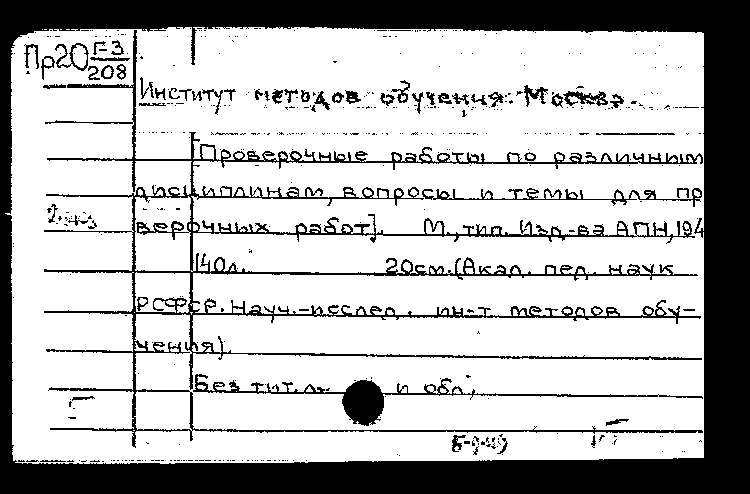 Пр20 Г-3/208
Институт методов обучения. Москва.
[Проверочные работы по различным
дисциплинам, вопросы и темы для пр
верочных работ]. М., тип. Изд-ва АПН, 194
140л. 20см. (Акад. пед. наук
2 экз
РСФСР. Науч.-исслед. ин-т методов обу-
чения).
Без тит. л. и обл.
Б-9-49